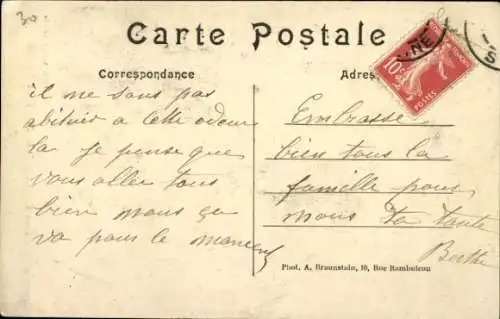 30
Carte Postale
Correspondance
Adres
10c
POSTES
NE
il ne sons pas
abituér a cette odeur
la je pense que
vous aller tous
bien nous ça
va pour le moment
Embrasse
bien tous la
famille pour
nous ta tante
Berthe
Phot. A. Braunstein, 10, Rue Rambuteau